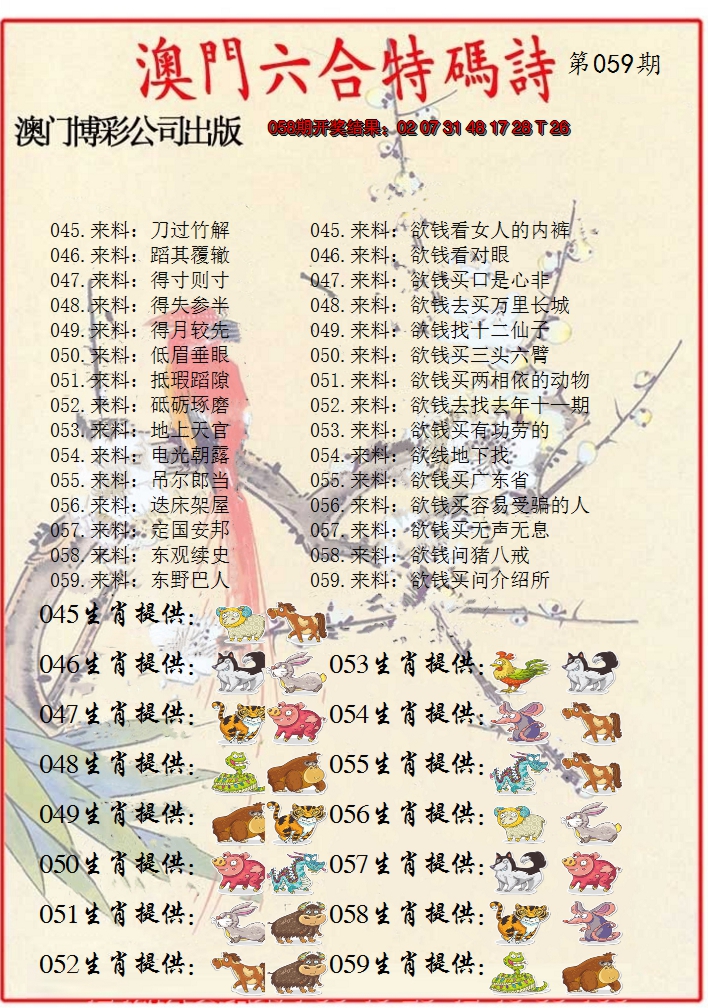 澳門六合特碼詩 第059期
澳门博彩公司出版 058期开奖结果：02 07 31 48 17 28 T 26
045.来料：刀过竹解 045.来料：欲钱看女人的内裤
046.来料：蹈其覆辙 046.来料：欲钱看对眼
047.来料：得寸则寸 047.来料：欲钱买口是心非
048.来料：得失参半 048.来料：欲钱去买万里长城
049.来料：得月较先 049.来料：欲钱找十二仙子
050.来料：低眉垂眼 050.来料：欲钱买三头六臂
051.来料：抵瑕蹈隙 051.来料：欲钱买两相依的动物
052.来料：砥砺琢磨 052.来料：欲钱去找去年十一期
053.来料：地上天官 053.来料：欲钱买有功劳的
054.来料：电光朝露 054.来料：欲线地下找
055.来料：吊尔郎当 055.来料：欲钱买广东省
056.来料：迭床架屋 056.来料：欲钱买容易受骗的人
057.来料：定国安邦 057.来料：欲钱买无声无息
058.来料：东观续史 058.来料：欲钱问猪八戒
059.来料：东野巴人 059.来料：欲钱买问介绍所
045生肖提供：
046生肖提供： 053生肖提供：
047生肖提供： 054生肖提供：
048生肖提供： 055生肖提供：
049生肖提供： 056生肖提供：
050生肖提供： 057生肖提供：
051生肖提供： 058生肖提供：
052生肖提供： 059生肖提供：